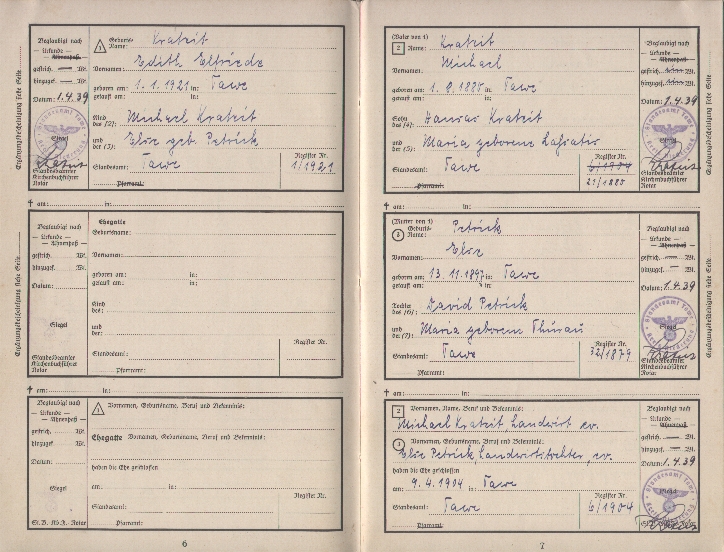 Beglaubigt nach
— Urkunde —
— Ahnenpaß —
gestrich. — W.
hinzugef. — W.
Datum: 1.4.39
Siegel
Standesbeamter
Kirchenbuchführer
Notar
1 Geburts-Name: Kratzit
Vornamen: Edith Elfriede
geboren am: 1.1.1921 in: Tawe
getauft am: in:
Kind des (2): Michael Kratzit
und der (3): Else geb. Petrick
Standesamt: Tawe
Register Nr. 1/1921
Pfarramt:
Ergänzungsbescheinigung siehe Seite
† am: in:
Beglaubigt nach
— Urkunde —
— Ahnenpaß —
gestrich. W.
hinzugef. W.
Datum:
Siegel
Standesbeamter
Kirchenbuchführer
Notar
Ehegatte
Geburtsname:
Vornamen:
geboren am: in:
getauft am: in:
Kind des:
und der:
Standesamt:
Register Nr.
Pfarramt:
Ergänzungsbescheinigung siehe Seite
† am: in:
Beglaubigt nach
— Urkunde —
— Ahnenpaß —
gestrich. W.
hinzugef. W.
Datum:
Siegel
St.B. Kb.F. Notar
1 Vornamen, Geburtsname, Beruf und Bekenntnis:
Ehegatte Vornamen, Geburtsname, Beruf und Bekenntnis:
haben die Ehe geschlossen
am: in:
Standesamt:
Register Nr.
Pfarramt:
6
(Vater von 1)
2 Name: Kratzit
Vornamen: Michael
geboren am: in: Tawe
getauft am: in:
Sohn des (4): Kratzit
und der (5): Maria geborene
Standesamt: Tawe
Register Nr. 6/1904
21/1880
Pfarramt:
Beglaubigt nach
— Urkunde —
— Ahnenpaß —
gestrich. W.
hinzugef. W.
Datum: 1.4.39
Siegel
Standesbeamter
Kirchenbuchführer
Notar
Ergänzungsbescheinigung siehe Seite
† am: in:
(Mutter von 1)
3 Geburts-Name: Petrick
Vornamen: Else
geboren am: 13.11. in: Tawe
getauft am: in:
Tochter des (6): David Petrick
und der (7): Maria geborene
Standesamt: Tawe
Register Nr. 32/1879
Pfarramt:
Beglaubigt nach
— Urkunde —
— Ahnenpaß —
gestrich. — W.
hinzugef. — W.
Datum: 1.4.39
Siegel
Standesbeamter
Kirchenbuchführer
Notar
Ergänzungsbescheinigung siehe Seite
† am: in:
2 Vornamen, Name, Beruf und Bekenntnis:
Michael Kratzit, Landwirt ev.
3 Vornamen, Geburtsname, Beruf und Bekenntnis:
Else Petrick, Landwirtstochter, ev.
haben die Ehe geschlossen
am: 9.4.1904 in: Tawe
Standesamt: Tawe
Register Nr. 6/1904
Pfarramt:
Beglaubigt nach
— Urkunde —
— Ahnenpaß —
gestrich. — W.
hinzugef. — W.
Datum: 1.4.39
Siegel
St.B. Kb.F. Notar
7